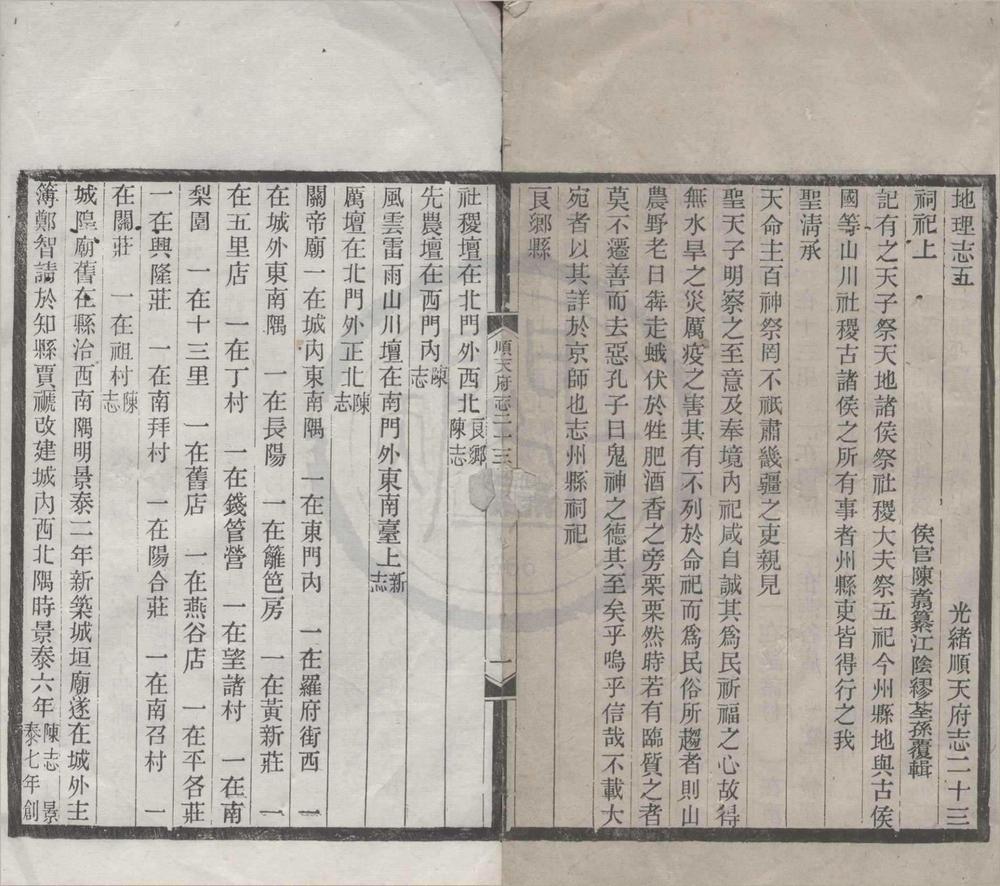 地理志五 光緒順天府志二十三
祠祀上 侯官陳翥纂江陰繆荃孫覆輯
記有之天子祭天地諸侯祭社稷大夫祭五祀今州縣地與古侯
國等山川社稷古諸侯之所有事者州縣吏皆得行之我
聖清承
天命主百神祭罔不祇肅畿疆之吏親見
聖天子明察之至意及奉境內祀咸自誠其爲民祈福之心故得
無水旱之災厲疫之害其有不列於命祀而爲民俗所趨者則山
農野老日犇走蛾伏於牲肥酒香之旁栗栗然時若有臨質之者
莫不遷善而去惡孔子曰鬼神之德其至矣乎嗚乎信哉不載大
宛者以其詳於京師也志州縣祠祀
良鄉縣
順天府志二十三
一
社稷壇在北門外西北良鄉陳志
先農壇在西門內陳志
風雲雷雨山川壇在南門外東南臺上新志
厲壇在北門外正北陳志
關帝廟一在城內東南隅 一在東門內 一在羅府街西 一
在城外東南隅 一在長陽 一在籬笆房 一在黃新莊 一
在五里店 一在丁村 一在錢管營 一在望諸村 一在南
梨園 一在十三里 一在舊店 一在燕谷店 一在平各莊
一在興隆莊 一在南拜村 一在陽合莊 一在南召村 一
在關莊 一在祖村陳志
城隍廟舊在縣治西南隅明景泰二年新築城垣廟遂在城外主
簿鄭智請於知縣賈禠改建城內西北隅時景泰六年陳志 景泰七年創